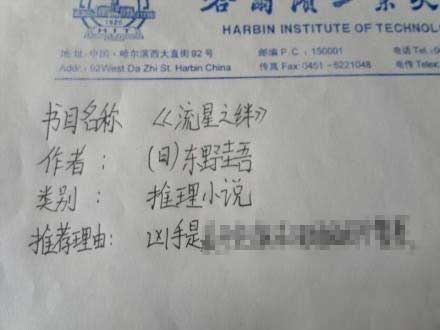 1920
HIT
HARBIN INSTITUTE OF TECHNOLOG
地址·中国·哈尔滨西大直街92号 邮编P.C.:150001 电话Tel:0
Addr.:92West Da Zhi St.Harbin China 传真Fax:0451-6221048 电
书目名称 《流星之绊》
作者: (日)东野圭吾
类别: 推理小说
推荐理由: 凶手是